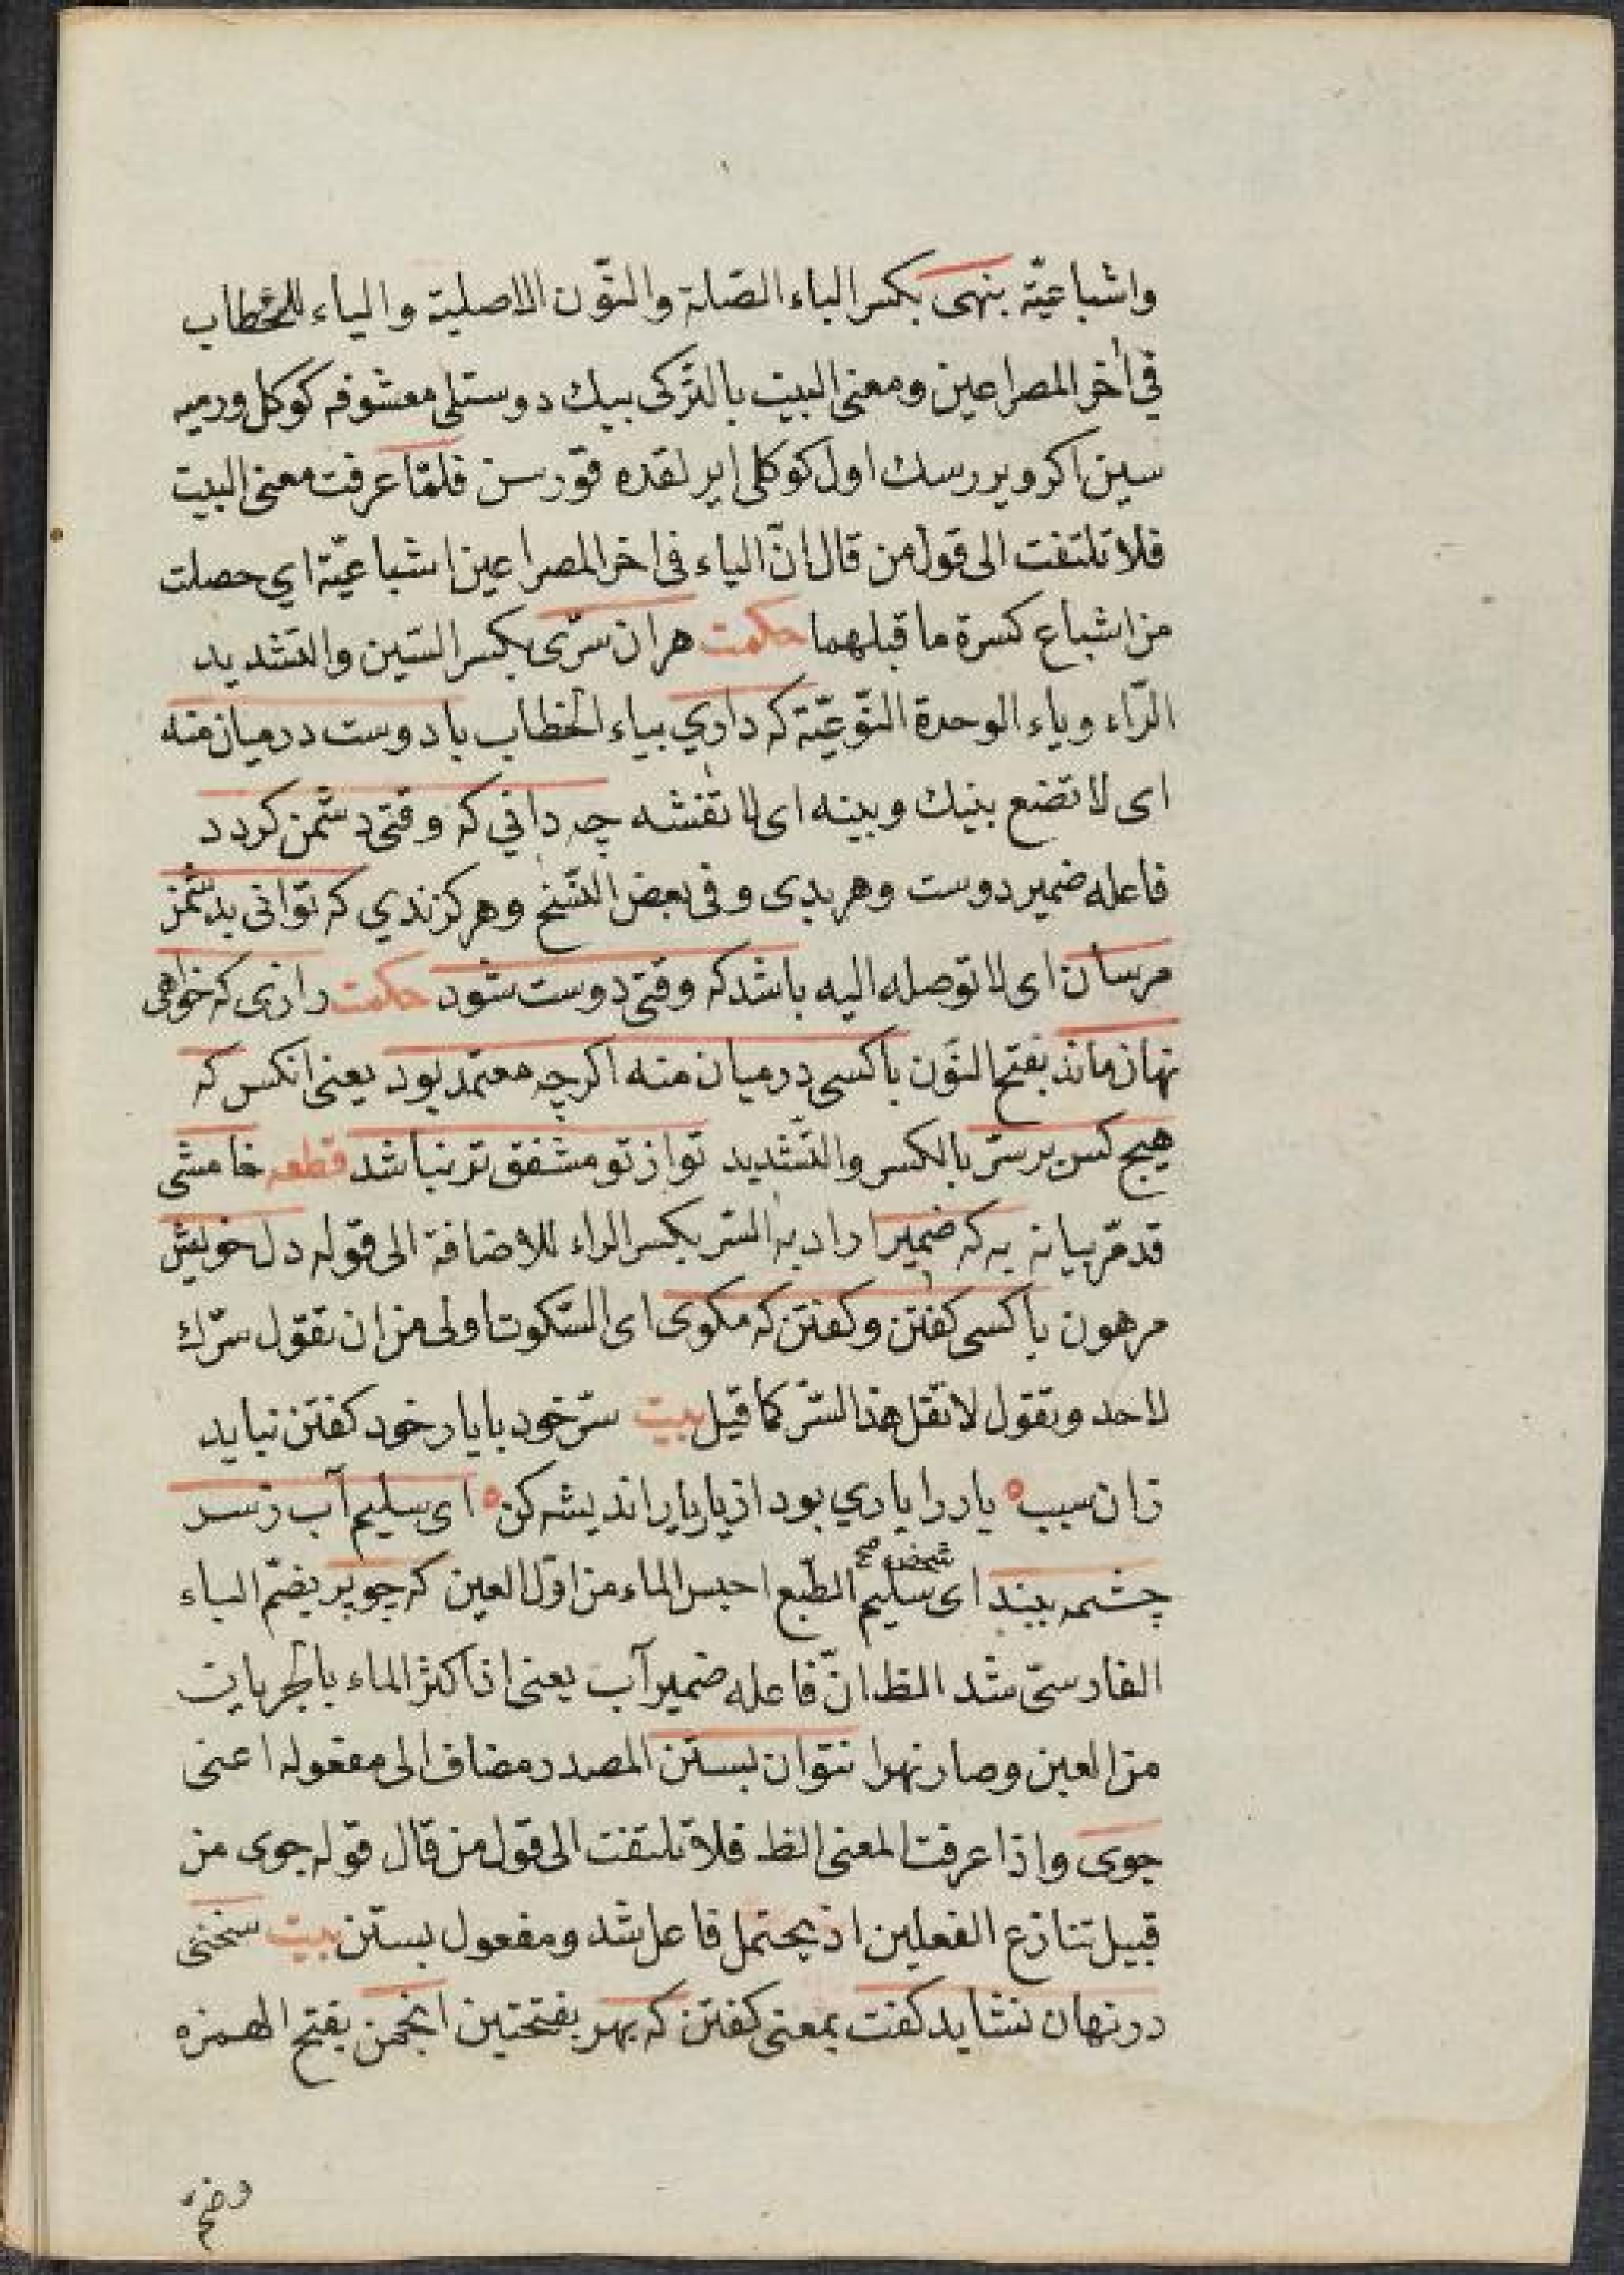 واشباعيّة بنهى بكسر الباء الصّلة والنّون الاصلية والياء للخطاب
فى اخر المصراعين ومعنى البيت بالتّركى بيك دوستلى معشوقه كوكل ورميه
سين اكر ويررسك اول كوكلى ايرلقده قورسن فلمّا عرفت معنى البيت
فلا تلتفت الى قول من قال انّ الياء فى اخر المصراعين اشباعيّة اي حصلت
من اشباع كسرة ما قبلهما حكمت هران سرّى بكسر السّين والتشديد
الرّاء وياء الوحدة النّوعيّة كه داري بياء الخطاب با دوست درميان منه
اى لا تضع بينك وبينه اى لا تفشه چه داني كه وقتى دشمن كردد
فاعله ضمير دوست وهر بدى وفى بعض النّسخ وهر كزندي كه توانى بدشمن
مرسان اى لا توصله اليه باشد كه وقتى دوست شود حكمت رازى كه خواهى
نهان ماند بفتح النّون با كسى درميان منه اكرچه معتمد بود يعنى انكس كه
هيچ كس بر سرّ بالكسر والتّشديد تو از تو مشفق تر نباشد قطعه خامشى
قد مرّ بيانه به كه ضمير اراد به السّر بكسر الراء للاضافة الى قوله دل خويش
مرهون با كسى كفتن وكفتن كه مكوى اى السّكوت اولى من ان تقول سرّك
لاحد وتقول لا تقل هذا السّرّ كما قيل بيت سرّ خود با يار خود كفتن نبايد
زان سبب ه يار را ياري بود از يار يار انديشه كن ه اى سليم آب ز سر
چشمه ببند اى شخص صح سليم الطبع احبس الماء من اوّل العين كه چو پر بضمّ الباء
الفارسىّ شد الظ انّ فاعله ضمير آب يعنى اذا كثر الماء بالجريان
من العين وصار نهرا نتوان بستن المصدر مضاف الى مفعوله اعنى
جوى واذا عرفت المعنى الظ فلا تلتفت الى قول من قال قوله جوى من
قبيل تنازع الفعلين اذ يحتمل فاعل شد ومفعول بستن بيت سخنى
در نهان نشايد كفت بمعنى كفتن كه بهر بفتحتين انجمن بفتح الهمزه
وضم